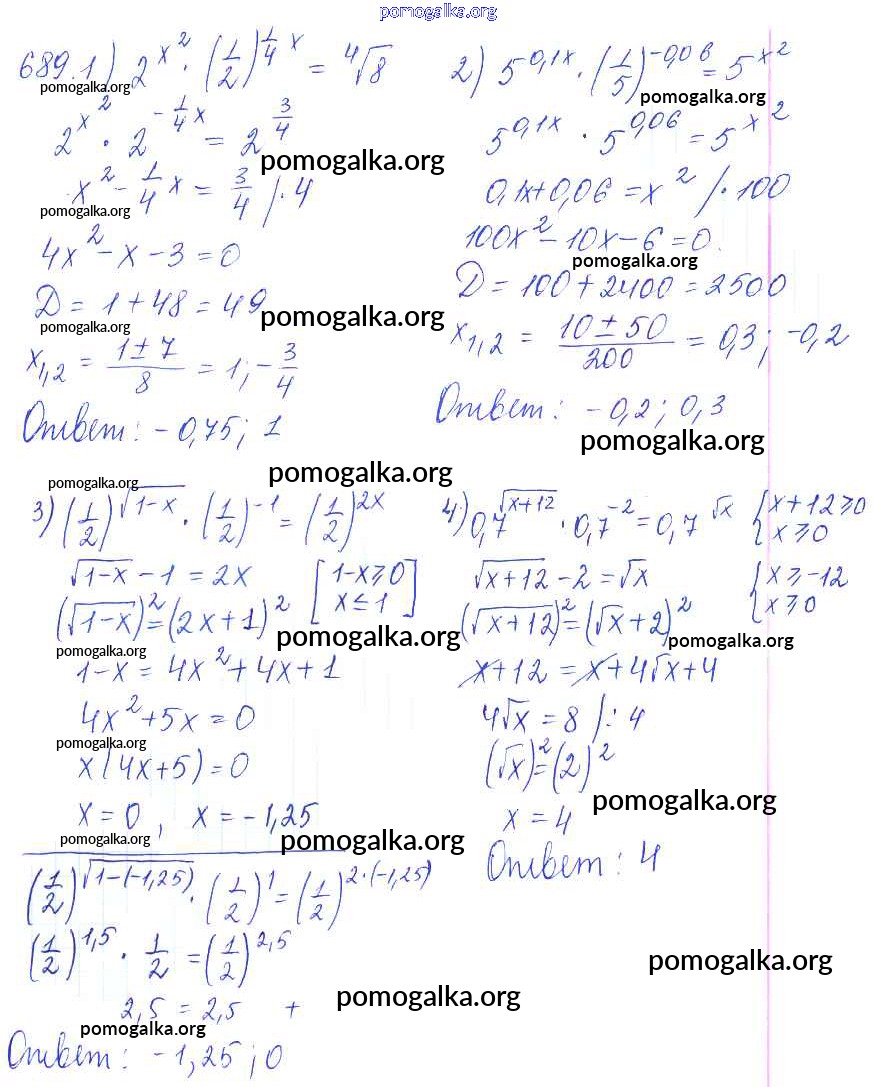 pomogalka.org
689.1) 2^{x^2} · (1/2)^{1/4 x} = ⁴√8
pomogalka.org
2^{x^2} · 2^{-1/4 x} = 2^{3/4}
pomogalka.org
x^2 - 1/4 x = 3/4 /·4
pomogalka.org
4x^2 - x - 3 = 0
D = 1 + 48 = 49
pomogalka.org
pomogalka.org
x_{1,2} = (1 ± 7)/8 = 1; -3/4
Ответ: -0,75; 1
2) 5^{0,1x} · (1/5)^{-0,06} = 5^{x^2}
pomogalka.org
5^{0,1x} · 5^{0,06} = 5^{x^2}
0,1x + 0,06 = x^2 /·100
100x^2 - 10x - 6 = 0.
pomogalka.org
D = 100 + 2400 = 2500
x_{1,2} = (10 ± 50)/200 = 0,3; -0,2
Ответ: -0,2; 0,3
pomogalka.org
pomogalka.org
pomogalka.org
3) (1/2)^{√(1-x)} · (1/2)^{-1} = (1/2)^{2x}
√(1-x) - 1 = 2x [1-x ≥ 0
x ≤ 1]
(√(1-x))^2 = (2x+1)^2
pomogalka.org
pomogalka.org
1-x = 4x^2 + 4x + 1
4x^2 + 5x = 0
pomogalka.org
x(4x+5) = 0
x = 0, x = -1,25
pomogalka.org
pomogalka.org
(1/2)^{√(1-(-1,25))} · (1/2)^1 = (1/2)^{2·(-1,25)}
(1/2)^{1,5} · 1/2 = (1/2)^{2,5}
2,5 = 2,5 +
pomogalka.org
pomogalka.org
Ответ: -1,25; 0
4) 0,7^{√(x+12)} · 0,7^{-2} = 0,7^{√x} {x+12 ≥ 0
x ≥ 0
√(x+12) - 2 = √x {x ≥ -12
x ≥ 0
(√(x+12))^2 = (√x+2)^2
pomogalka.org
x+12 = x+4√x+4
4√x = 8 /:4
(√x)^2 = (2)^2
pomogalka.org
x = 4
Ответ: 4
pomogalka.org